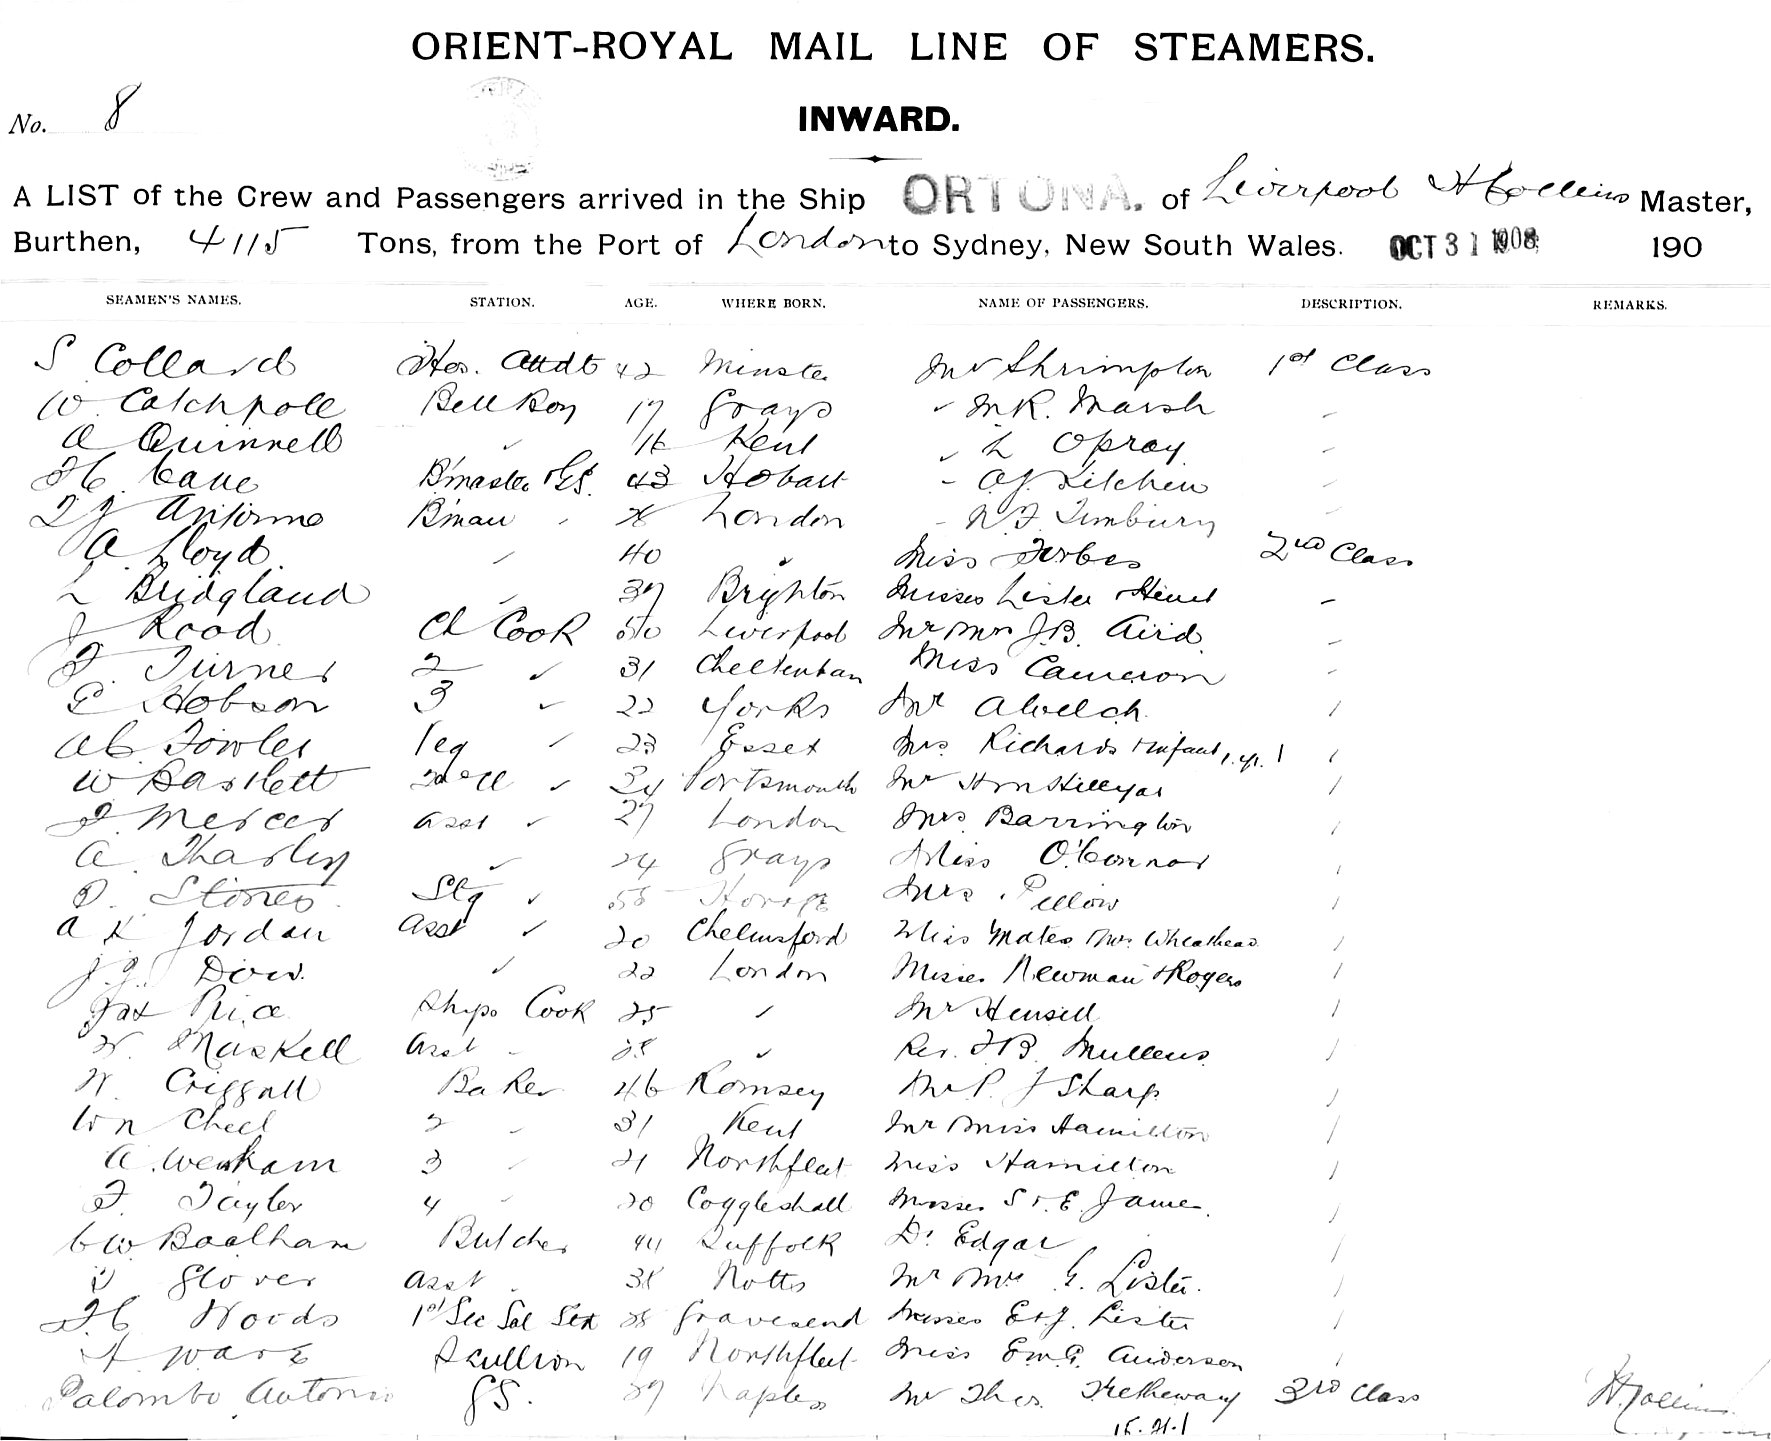 ORIENT-ROYAL MAIL LINE OF STEAMERS.
No. 8
INWARD.
A LIST of the Crew and Passengers arrived in the Ship ORTONA. of Liverpool H Collins Master,
Burthen, 4115 Tons, from the Port of London to Sydney, New South Wales. OCT 31 1908 190
SEAMEN'S NAMES. STATION. AGE. WHERE BORN. NAME OF PASSENGERS. DESCRIPTION. REMARKS.
S Collard Hos. Attdt 42 Minster Mr Shrimpton 1st Class
W. Catchpole Bell Boy 17 Grays " M R. Marsh "
A Quinnell " 16 Kent " L Opray "
H C. Cane B'master GS. 43 Hobart " A J. Kitchen "
B'man " London " N F. Timbury "
A. Lloyd. " 40 " Miss Forbes 2nd Class
L Bridgland " 37 Brighton Misses Lister "
J Rood Ch Cook 50 Liverpool Mr & Mrs J. B. Aird. "
F. Turner 2 " 31 Cheltenham Miss Cameron "
E Hobson 3 " 22 Yorks Mr A Welch. "
A C Fowler Veg " 23 Essex Mrs Richards & Infant, 1 yr. 1 "
W Bartlett " Portsmouth Mr "
F. Mercer Asst " 27 London Mrs Barrington "
A. " 24 Grays Miss O'Connor "
D. Stones " Mrs. Pellow "
A K Jordan Asst " 20 Chelmsford Miss Mates Mrs Wheathead "
Dow. " 22 London Misses Newman & Rogers "
Jas Price Ships Cook 25 " Mr Hensell "
W. Maskell Asst " 28 " Rev. F B. Mullens "
W. Criggall Baker 46 Romsey Mr P. J Sharp "
Wm Cheel 2 " 31 Kent Mr & Miss Hamilton "
A. Wenham 3 " 21 Northfleet Miss Hamilton "
F. Tayler 4 " 20 Coggleshall Misses S & E. James "
C W Baalham Butcher 44 Suffolk Dr Edgar "
D Glover Asst " 38 Notts Mr & Mrs G. Lister. "
H C Woods 1st Sec Sal Std 28 Gravesend Misses E & J. Lister "
Ware Scullion 19 Northfleet Miss E m G. Anderson "
Palombo Antonio GS. 39 Naples Mr Thos. Tretheway 3rd Class H. Collins
15.21.1